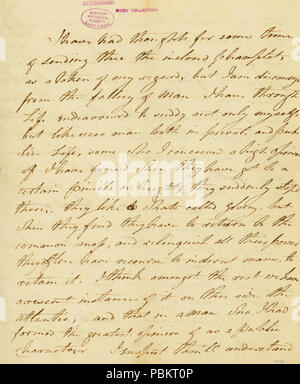 BIXBY COLLECTION
I have had thoughts for some time
of sending thee the inclosed pamphlet,
as a token of my regard, but I am discouraged
from the fallacy of man. I have through
Life endeavoured to study not only myself
but likewise man both in private, and pub
lic Life, some who I conceived a high opinion
of I have found when they have got to a
certain Pinicle or height, they suddenly stop
there, they like what is called glory, but
when they find they have to return to the
common mass, and relinquish all their power
they often have recourse to indirect means to
retain it. I think amongst the rest we have
a recent instance of it on this side the
atlantic, and that in a man who I had
formed the greatest opinion of as a publick
character. I suspect thou'll understand
alamy